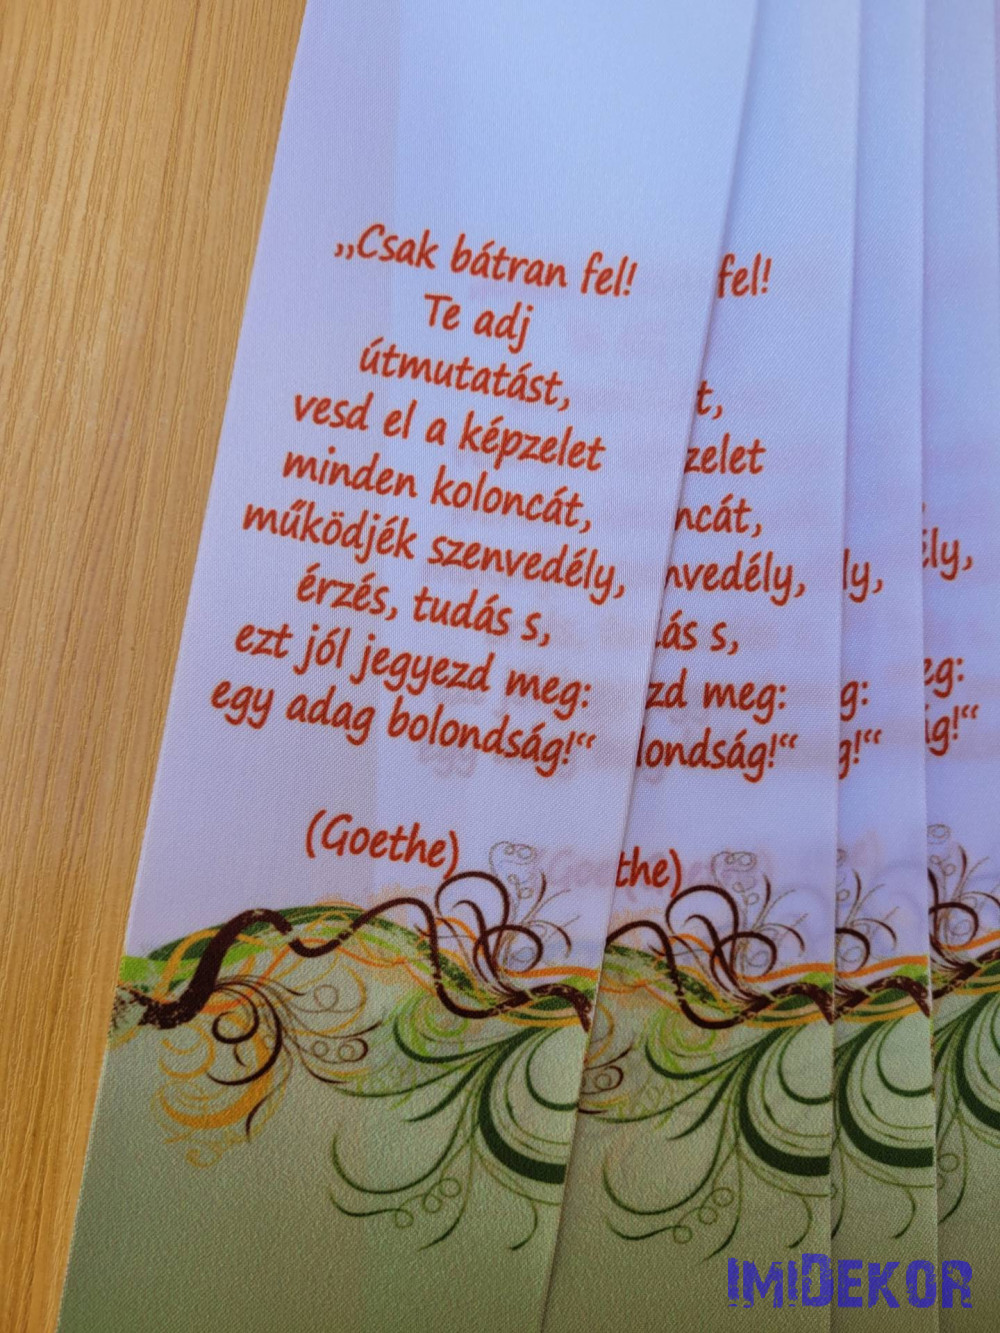 „Csak bátran fel!
Te adj
útmutatást,
vesd el a képzelet
minden koloncát,
működjék szenvedély,
érzés, tudás s,
ezt jól jegyezd meg:
egy adag bolondság!“
(Goethe)
fel!
t,
zelet
ncát,
nvedély,
ás s,
zd meg:
londság!“
the)
ly,
g:
g!“
ély,
eg:
ág!“
IMIDEKOR